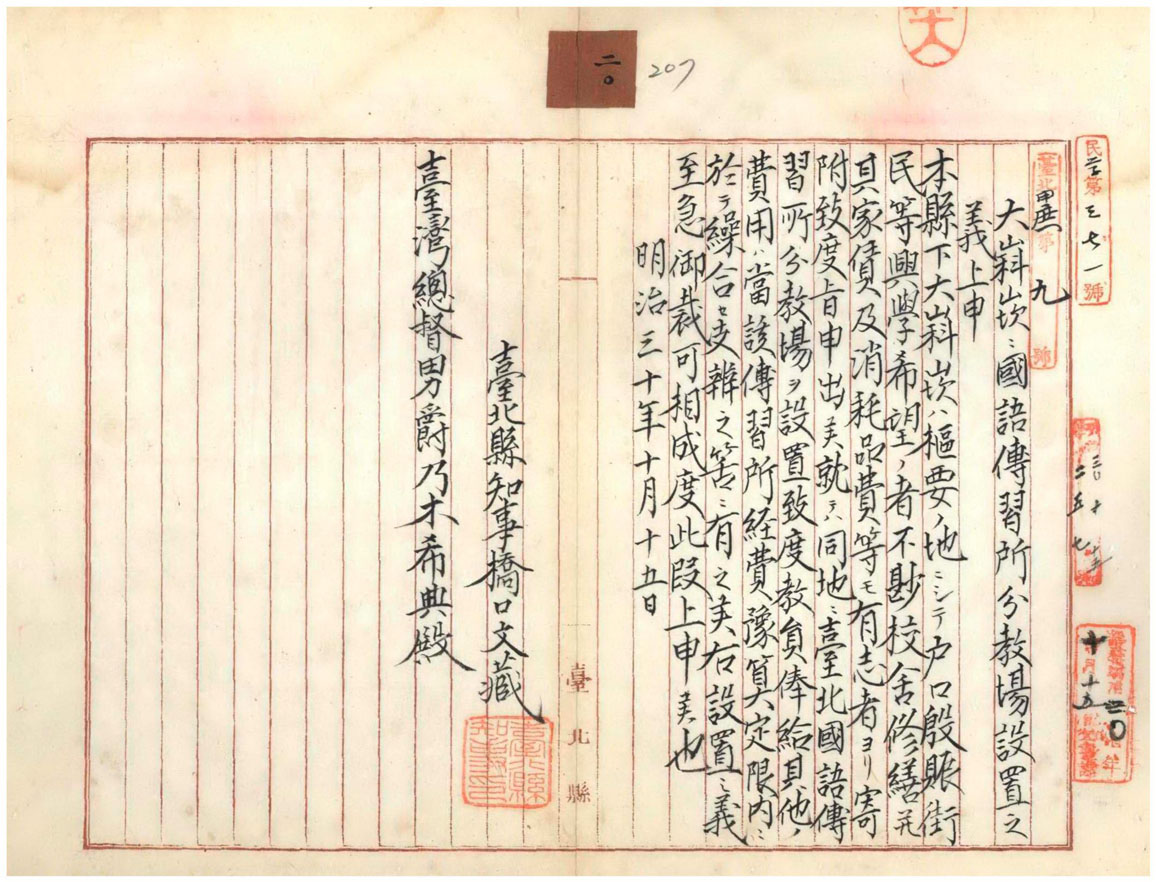 二〇
207
民学第三七一號
臺北縣甲庶第九號
大嵙崁ニ國語傳習所分教場設置之
義上申
本縣下大嵙崁ハ樞要ノ地ニシテ户口殷賑街
民等興學希望ノ者不尠校舎修繕并
其家債及消耗品費等モ有志者ヨリ寄
附致度旨申出候就テハ同地ニ臺北國語傳
習所分教場ヲ設置致度教員俸給其他ノ
費用ハ當該傳習所経費豫算定限内ニ
於テ繰合セ支辨之筈ニ有之候右設置之義
至急御裁可相成度此段上申候也
明治三十年十月十五日
臺北縣知事橋口文藏
臺灣總督男爵乃木希典殿
臺北縣